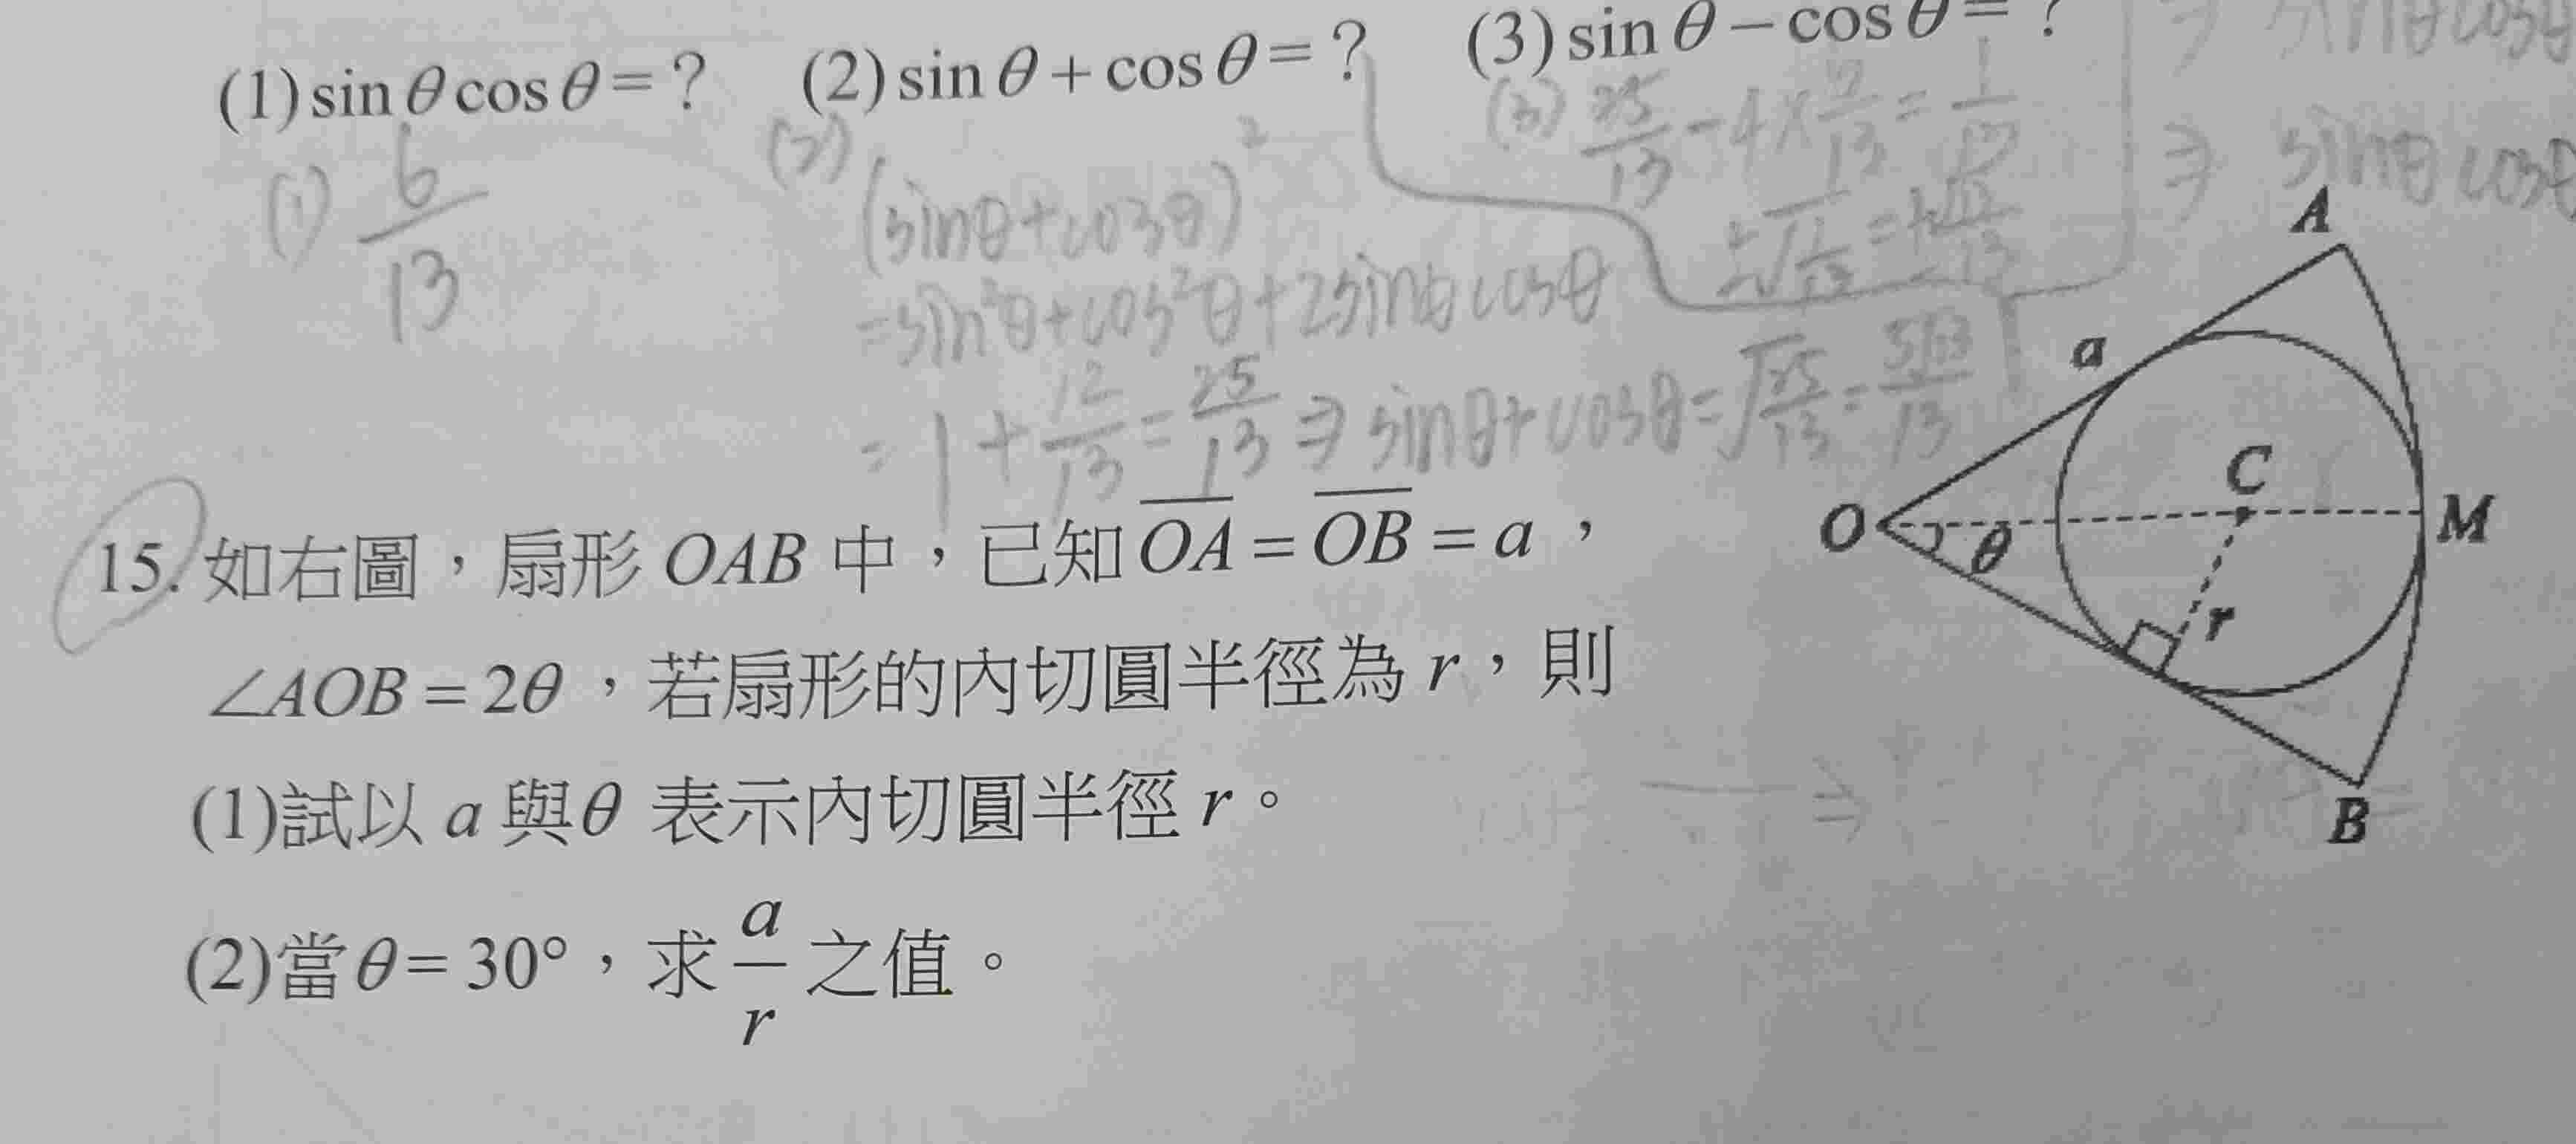 (1) sin θ cos θ = ? (2) sin θ + cos θ = ? (3) sin θ − cos θ = ?
(1) 6/13
(2) (sinθ+cosθ)²
=sin²θ+cos²θ+2sinθcosθ
= 1 + 12/13 = 25/13 ⇒ sinθ+cosθ=√25/13 = 5√13/13
(3) 25/13 − 4×
⇒ sinθcosθ
⇒ sinθcosθ
15. 如右圖，扇形 OAB 中，已知 OA = OB = a，
∠AOB = 2θ，若扇形的內切圓半徑為 r，則
(1)試以 a 與θ 表示內切圓半徑 r。
(2)當θ= 30°，求 a/r 之值。
A
a
C
O
θ
M
r
B